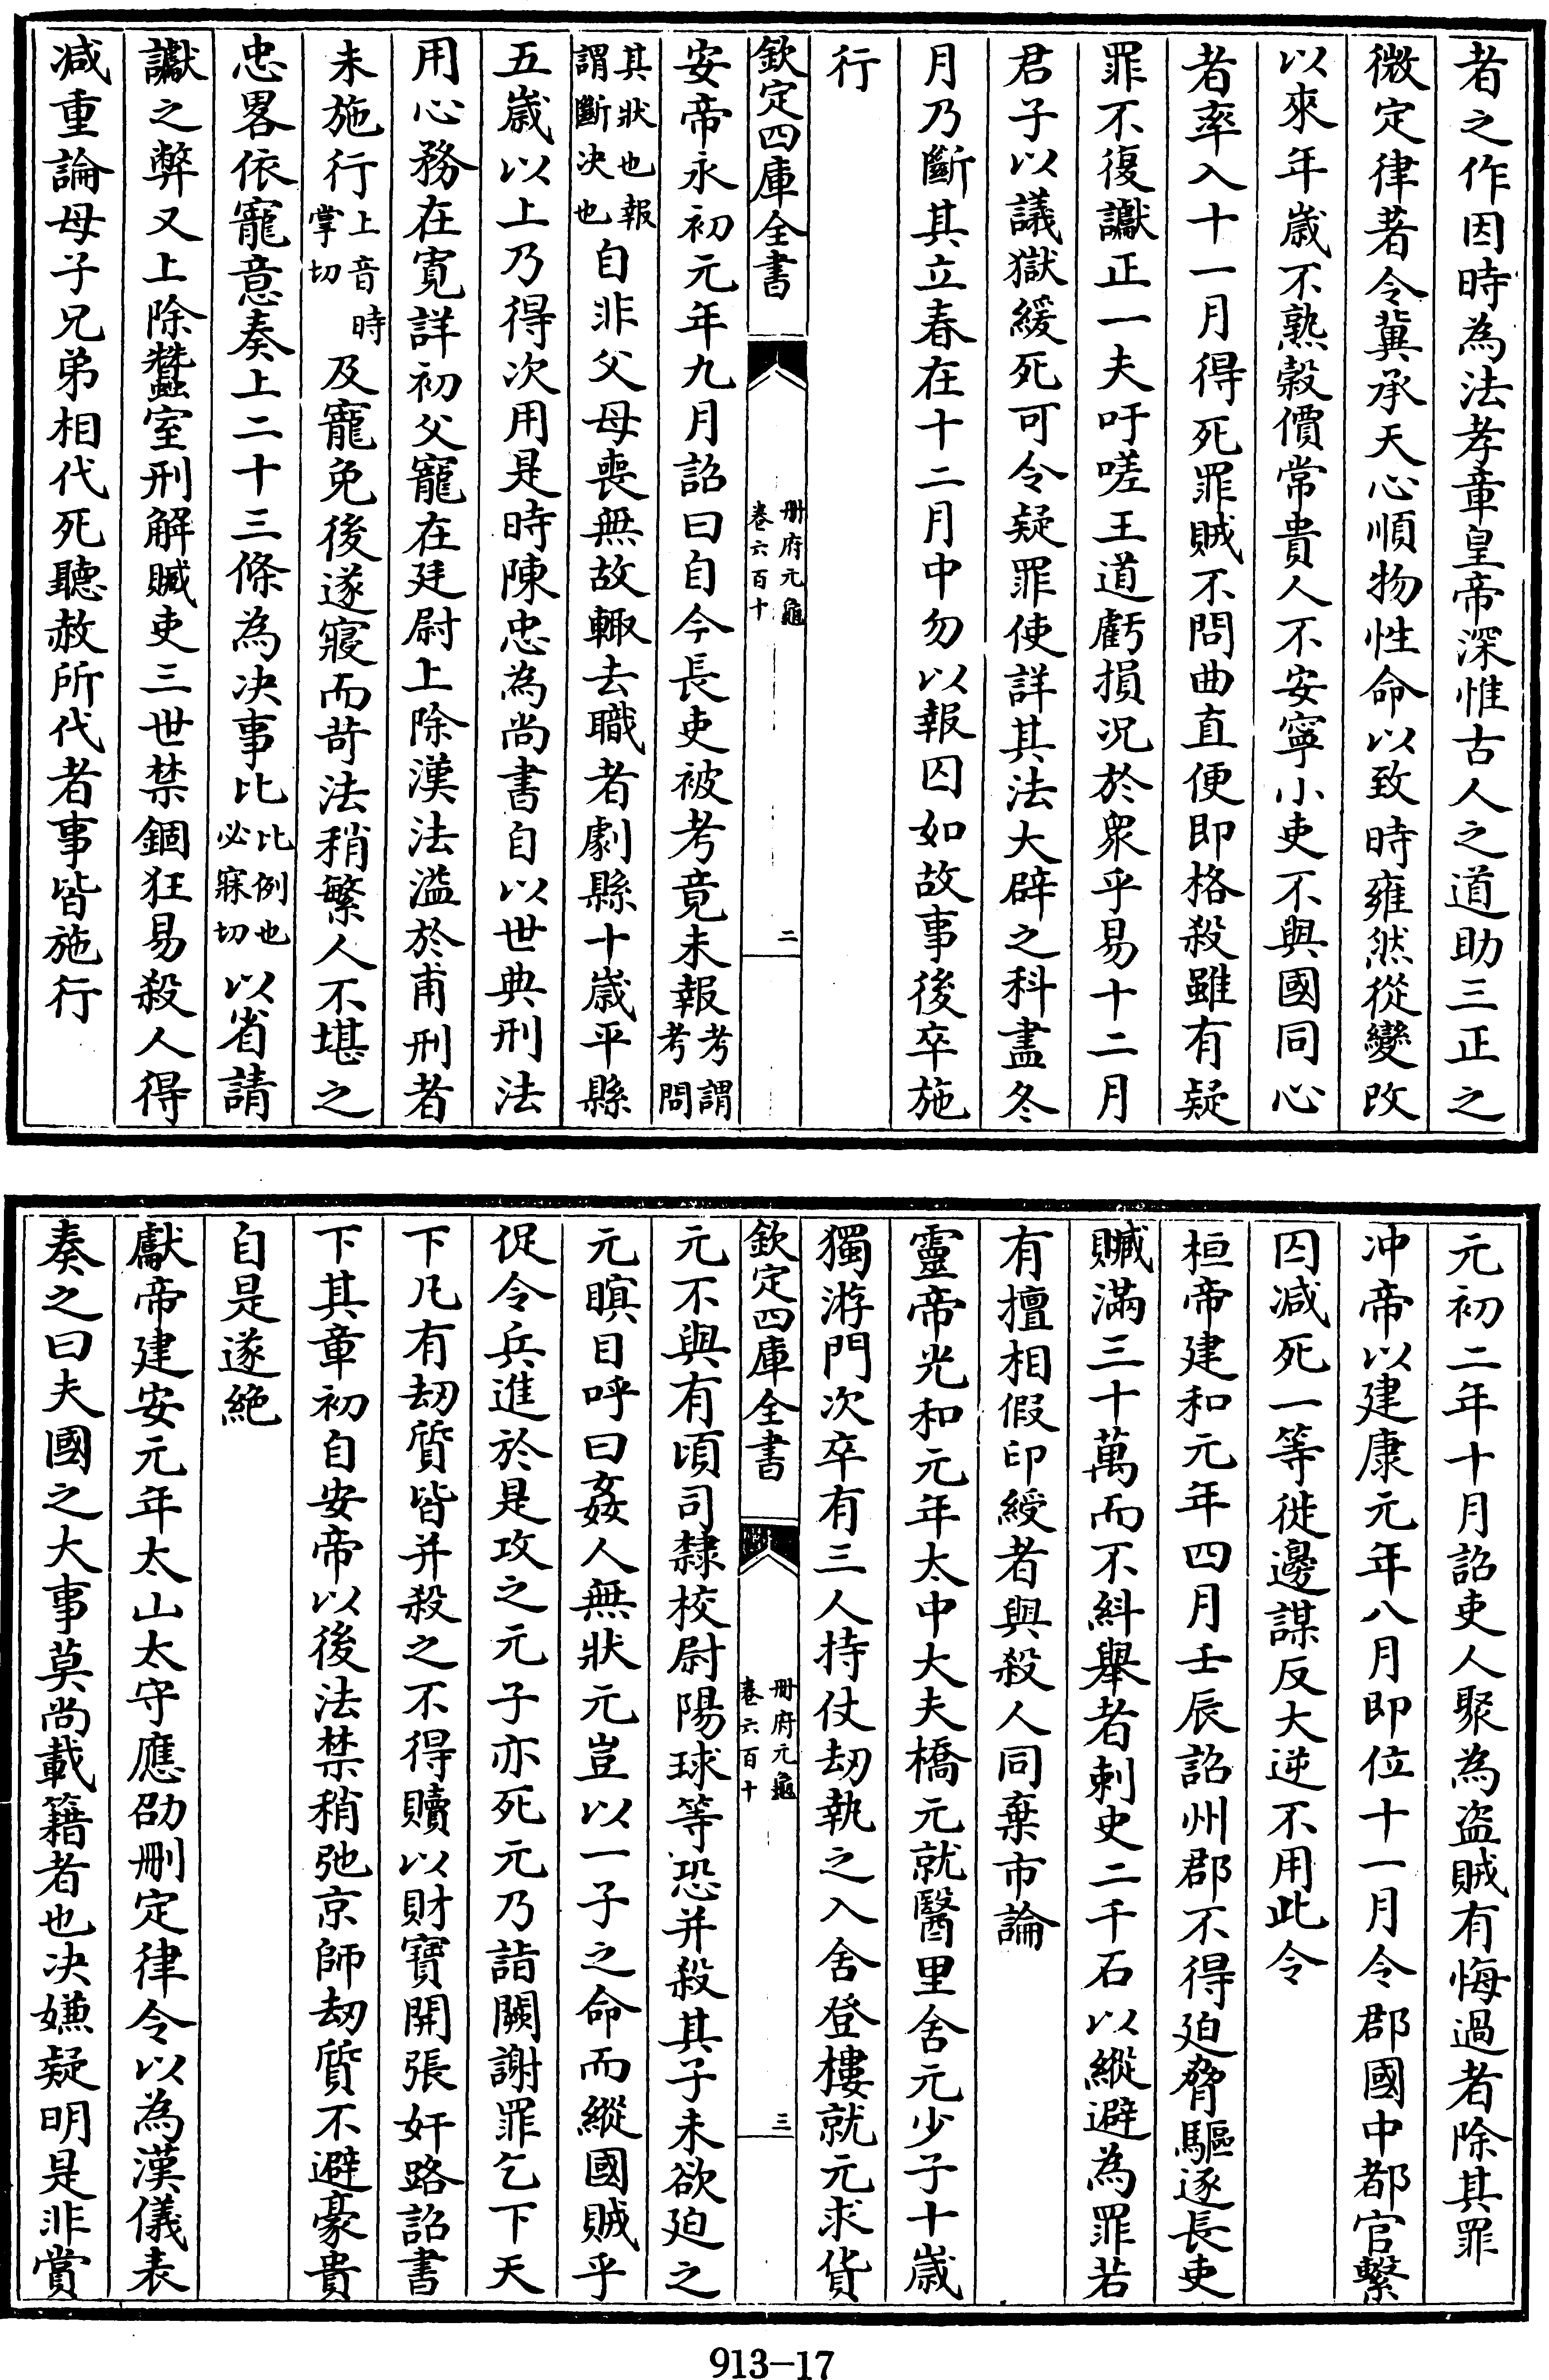 者之作因時為法孝章皇帝深惟古人之道助三正之
微定律著令冀承天心順物性命以致時雍然從變改
以來年歲不熟穀價常貴人不安寧小吏不與國同心
者率入十一月得死罪賊不問曲直便即格殺雖有疑
罪不復讞正一夫吁嗟王道虧損况於衆乎易十二月
君子以議獄緩死可令疑罪使詳其法大辟之科盡冬
月乃斷其立春在十二月中勿以報囚如故事後卒施
行
欽定四庫全書
册府元龜
卷六百十
二
安帝永初元年九月詔曰自今長吏被考竟未報考謂考問
其狀也報謂斷决也自非父母喪無故輙去職者劇縣十歲平縣
五歲以上乃得次用是時陳忠為尚書自以世典刑法
用心務在寛詳初父寵在廷尉上除漢法溢於甫刑者
未施行上音時掌切及寵免後遂寢而苛法稍繁人不堪之
忠畧依寵意奏上二十三條為决事比比例也必寐切以省請
讞之弊又上除蠶室刑解贓吏三世禁錮狂易殺人得
减重論母子兄弟相代死聽赦所代者事皆施行
元初二年十月詔吏人聚為盗賊有悔過者除其罪
冲帝以建康元年八月即位十一月令郡國中都官繫
囚减死一等徙邊謀反大逆不用此令
桓帝建和元年四月壬辰詔州郡不得廹脅驅逐長吏
贓滿三十萬而不糾舉者刺史二千石以縱避為罪若
有擅相假印綬者與殺人同棄市論
靈帝光和元年太中大夫橋元就醫里舍元少子十歲
獨游門次卒有三人持仗刼執之入舍登樓就元求貨
欽定四庫全書
册府元龜
卷六百十
三
元不與有頃司隸校尉陽球等恐并殺其子未欲廹之
元瞋目呼曰姦人無狀元豈以一子之命而縱國賊乎
促令兵進於是攻之元子亦死元乃詣闕謝罪乞下天
下凡有刼質皆并殺之不得贖以財寶開張奸路詔書
下其章初自安帝以後法禁稍弛京師刼質不避豪貴
自是遂絶
獻帝建安元年太山太守應劭刪定律令以為漢儀表
奏之曰夫國之大事莫尚載籍者也决嫌疑明是非賞
913-17